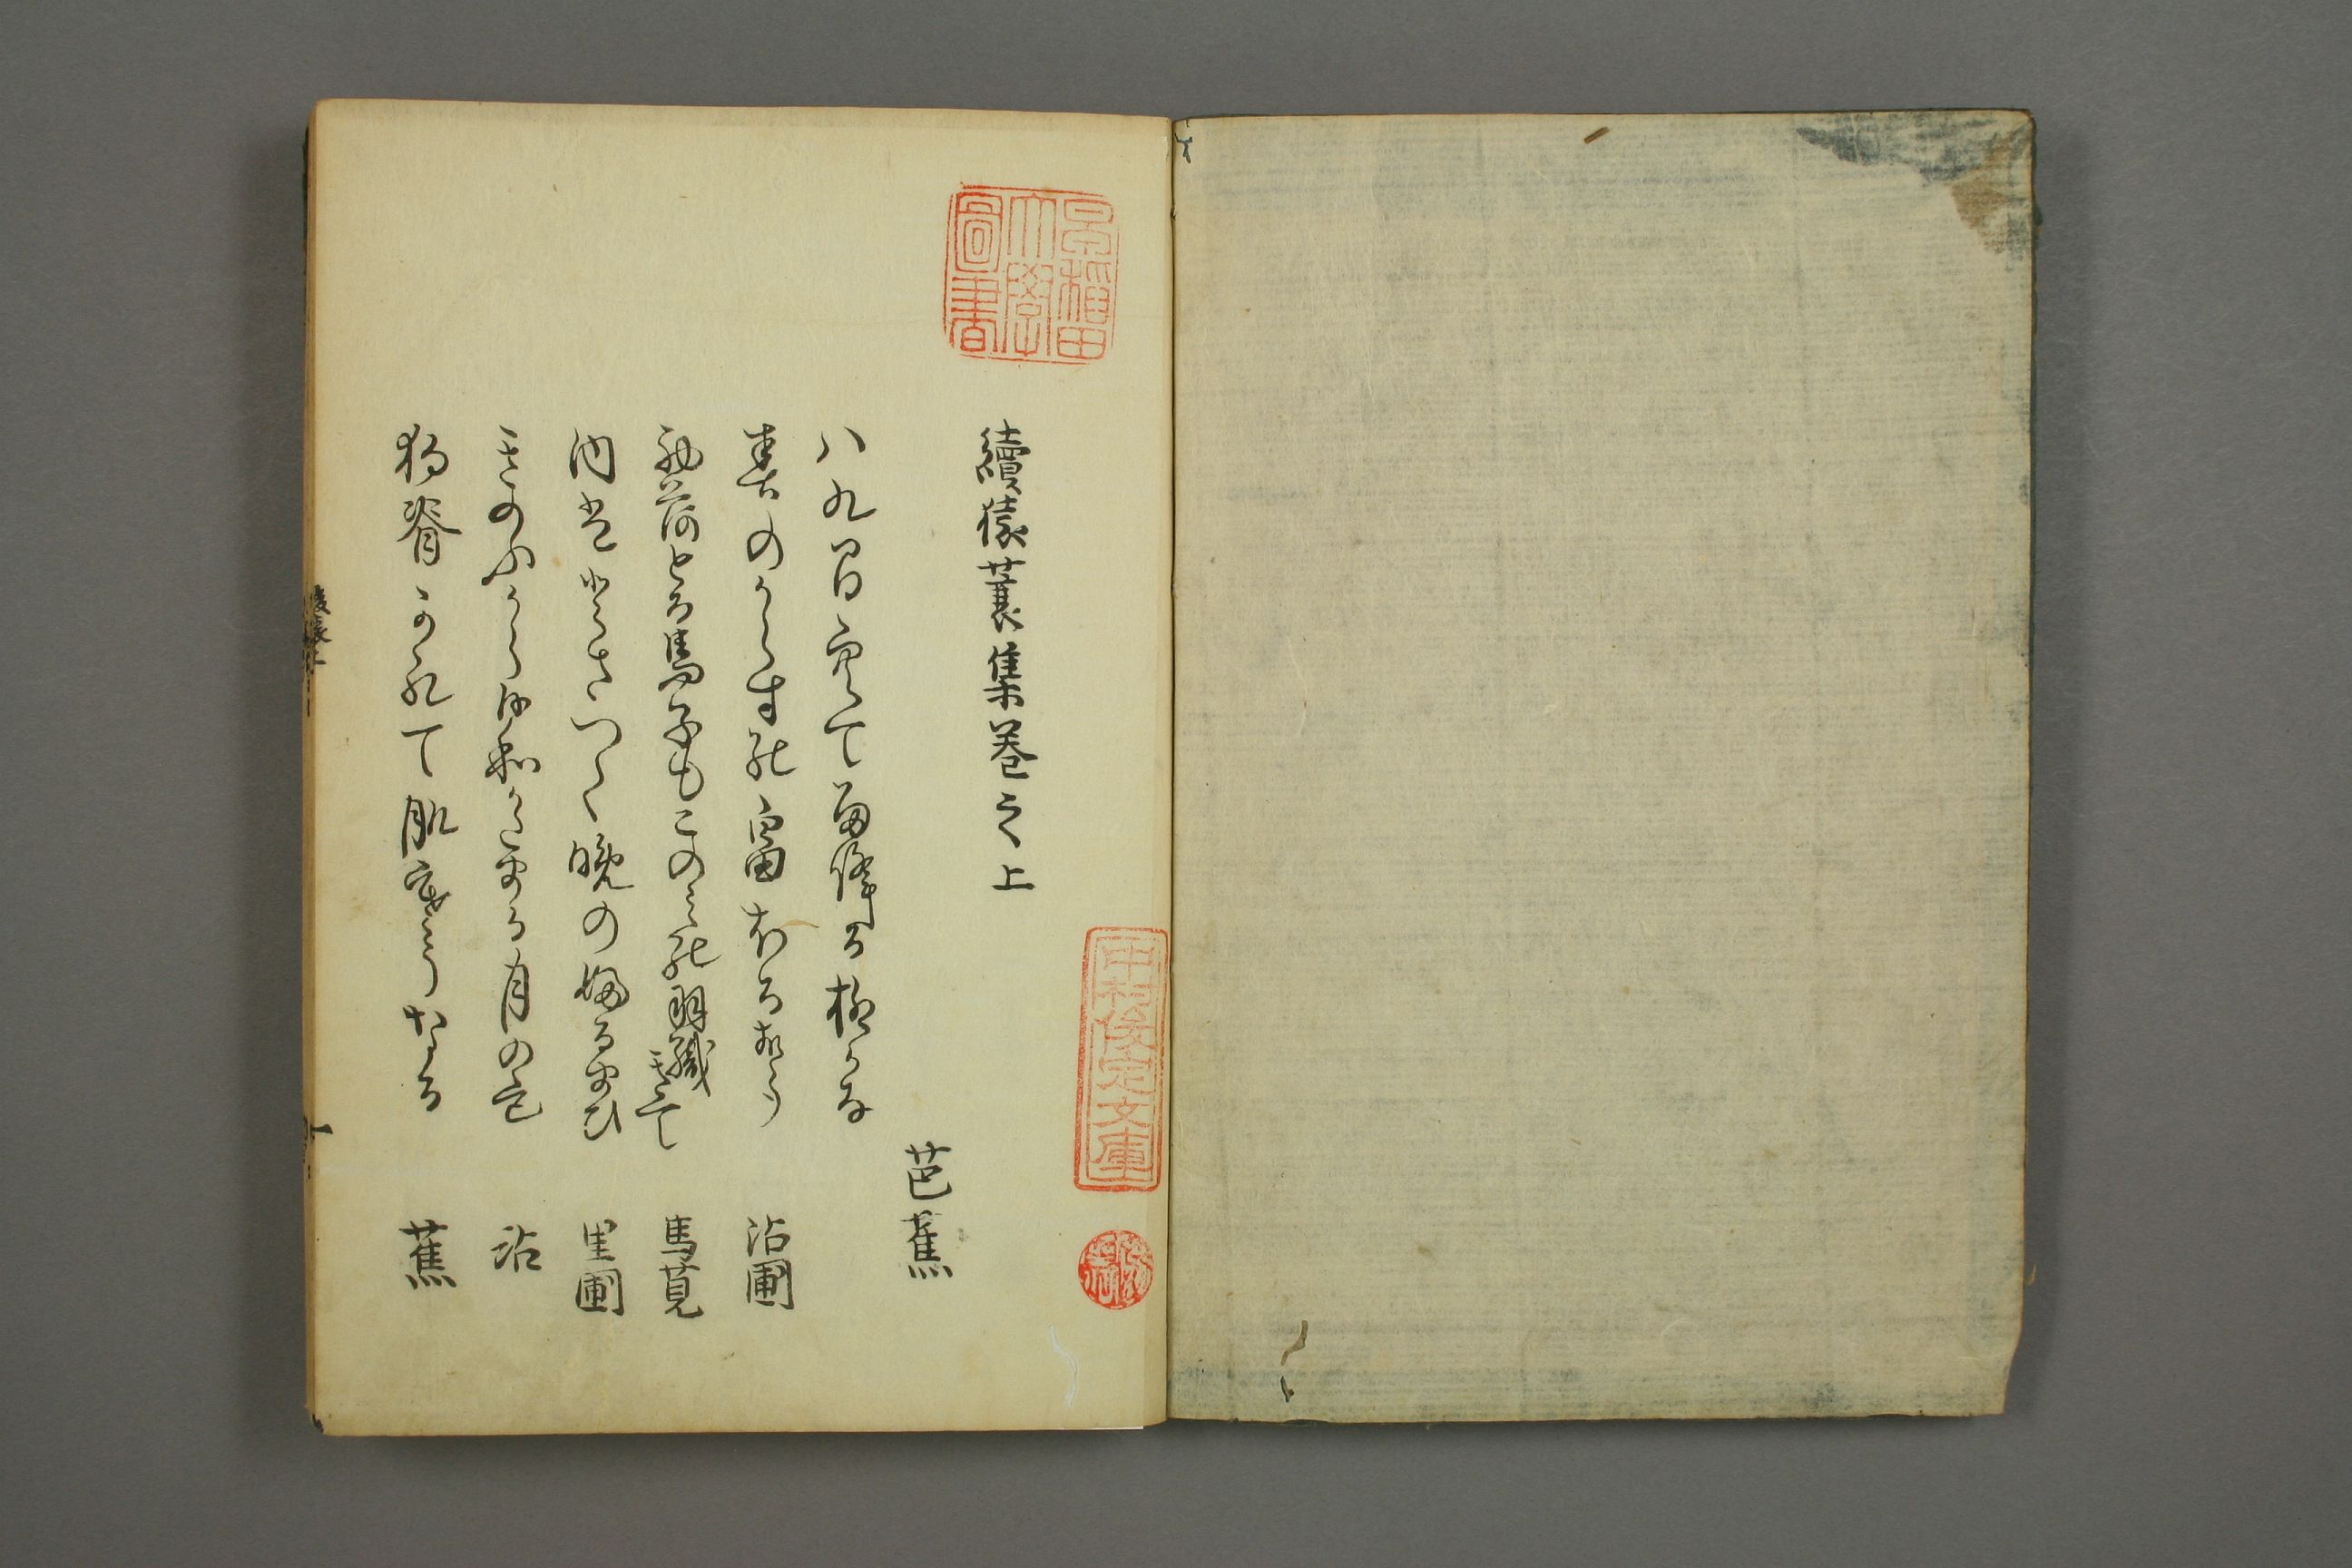 早稲田大學圖書
中村俊定文庫
續猿蓑集巻之上
芭蕉
八九間空て雨降る柳かな
春のからすの畠ほる声 沾圃
初荷とる馬子もこのみの羽織きて 馬莧
内はとさつく晩のふるまひ 里圃
きのふから日和かたまる月の色 沾
狗脊かれて肌寒うなる 蕉